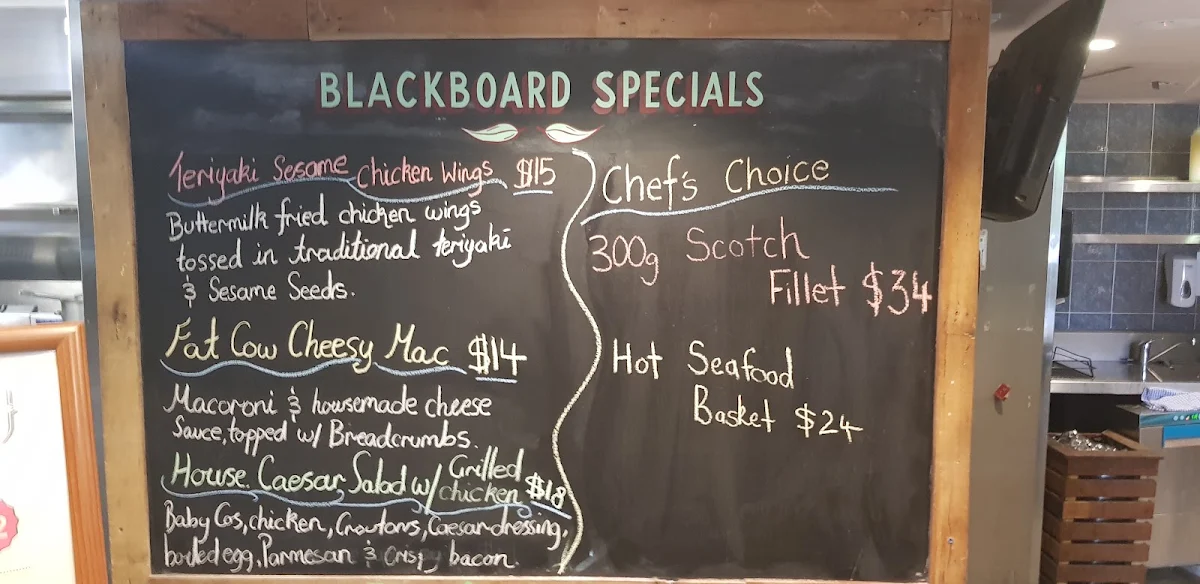 BLACKBOARD SPECIALS
Teriyaki Sesame Chicken Wings $15
Buttermilk fried chicken wings
tossed in traditional teriyaki
& Sesame Seeds.
Fat Cow Cheesy Mac $14
Macoroni & housemade cheese
Sauce, topped w/ Breadcrumbs.
House Caesar Salad w/ Grilled chicken $18
Baby Cos, chicken, Croutons, Caesar dressing,
boiled egg, Parmesan & Crispy bacon.
Chef's Choice
300g Scotch
Fillet $34
Hot Seafood
Basket $24